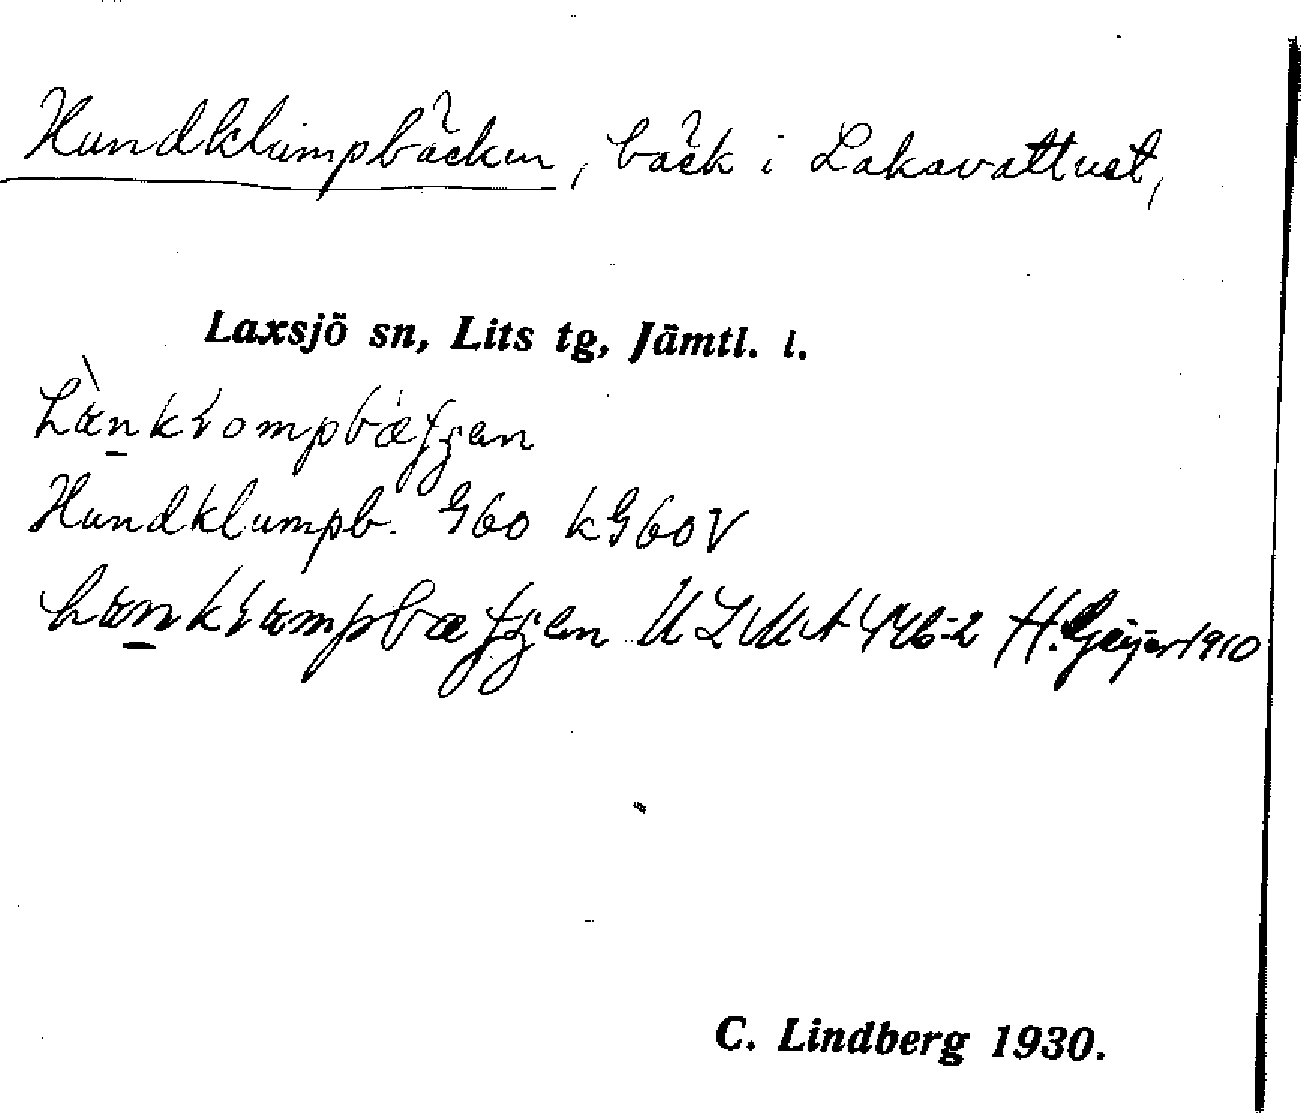 Hundklumpbäcken, bäck i Lakavattnet,
Laxsjö sn, Lits tg, Jämtl. l.
Hundklumpb. G60 kG60V
ULMA 446:2 H. Geijer 1910
C. Lindberg 1930.